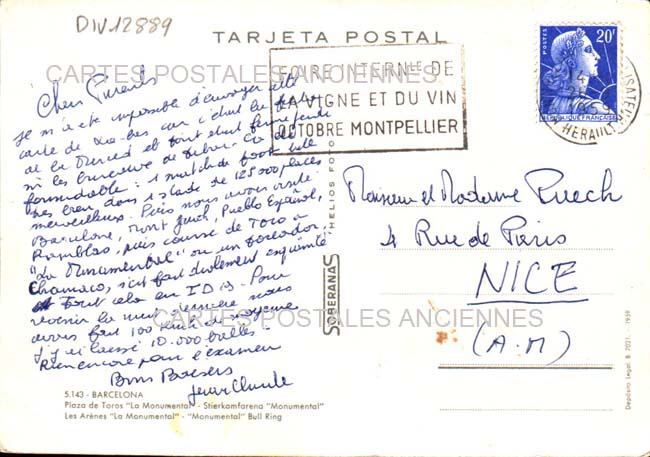 DIV12889
TARJETA POSTAL
FOIRE INTERNle DE
LA VIGNE ET DU VIN
OCTOBRE MONTPELLIER
POSTES
20F
REPUBLIQUE FRANÇAISE
HERAULT
CARTES POSTALES ANCIENNES
Chers Parents
Je n'ai été impossible d'envoyer cette
carte de là-bas car c'était la
de la Merced et tout était fermé
ni les bureaux de tabac.
formidable : 1 match de foot
dans 1 stade de 125000 places
merveilleux. Puis nous avons visité
Barcelone, Mont Juich, Pueblo Español,
Ramblas, puis course de Toros à
"La Monumental" où un toreador,
Chamaco, s'est fait drôlement esquinté
Tout cela en ID 19. Pour
revenir la nuit dernière nous
avons fait 100 de moyenne
J'y ai laissé 10.000 balles.
Rien encore pour l'examen
Bons Baisers
Jean Claude
Monsieur et Madame Puech
4 Rue de Paris
NICE
(A.M)
HELIOS FOTO
SOBERANAS
CARTES POSTALES ANCIENNES
5.143 - BARCELONA
Plaza de Toros "La Monumental" - Stierkamfarena "Monumental"
Les Arènes "La Monumental" - "Monumental" Bull Ring
Depósito Legal B. 7021 - 1959